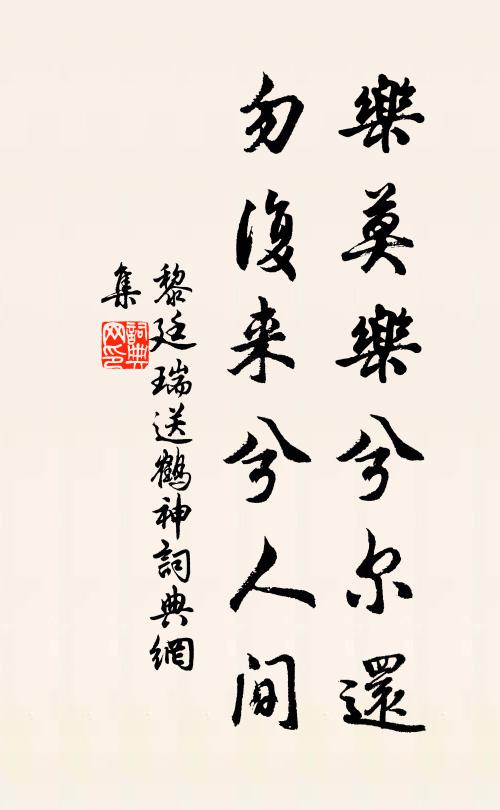 樂莫樂兮尔還
勿復来兮人间
黎廷瑞送鶴神詞典網
集
詞典
网印